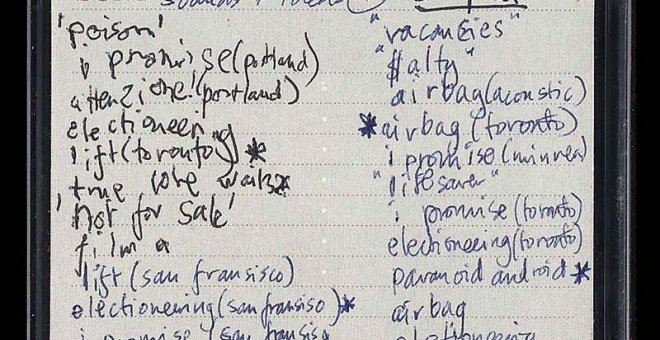 'poison'
i promise (portland)
attenzione! (portland)
electioneering
lift (toronto) *
true love waits *
'not for sale'
film a
lift (san fransisco)
electioneering (san fransiso) *
i promise (san fransisc
"vacancies"
"$alty"
airbag (acoustic)
* airbag (toronto)
i promise (minnea)
"lifesaver"
i promise (toronto)
electioneering (toronto)
paranoid android *
airbag
electioneering